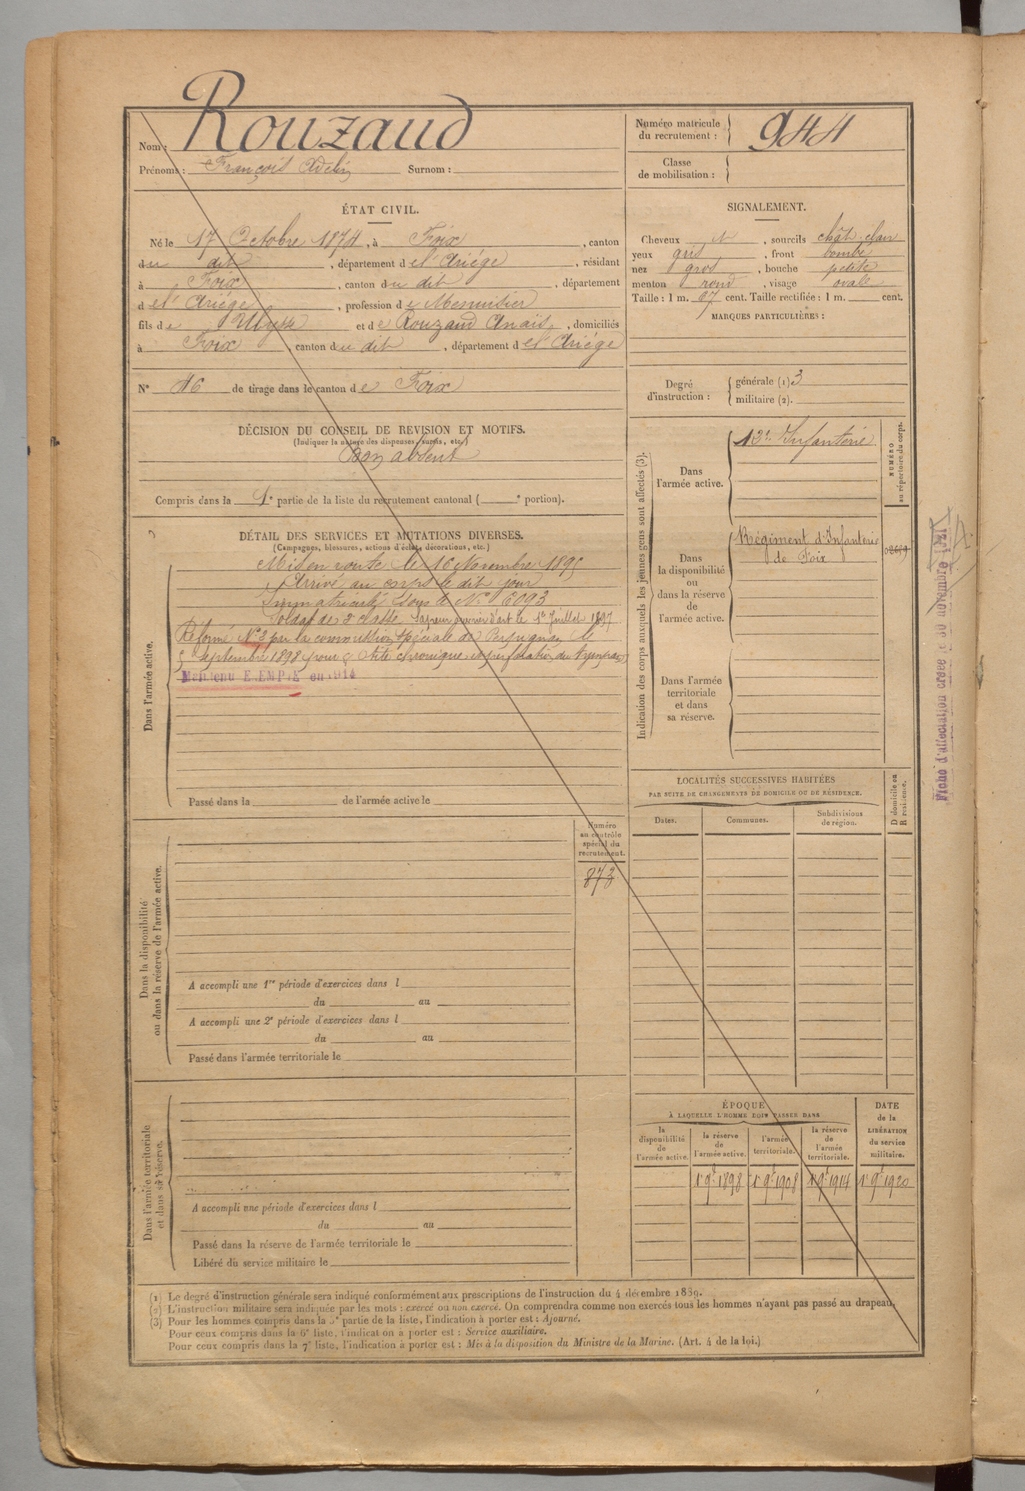 Nom : Rouzaud
Prénoms : François
Surnom :
Numéro matricule du recrutement : 944
Classe de mobilisation :
ÉTAT CIVIL.
Né le 17 Octobre 1874, à Foix, canton
du dit, département de l'Ariège, résidant
à Foix, canton du dit, département
de l'Ariège, profession de Menuisier
fils de Ulysse et de Rouzaud Anaïs, domiciliés
à Foix, canton du dit, département de l'Ariège
N° 46 de tirage dans le canton de Foix
SIGNALEMENT.
Cheveux et, sourcils chât. clair
yeux gris, front bombé
nez gros, bouche petite
menton rond, visage ovale
Taille : 1 m. 67 cent. Taille rectifiée : 1 m. cent.
MARQUES PARTICULIÈRES :
Degré d'instruction : générale (1) 3
militaire (2).
DÉCISION DU CONSEIL DE RÉVISION ET MOTIFS.
(Indiquer la nature des dispenses, sursis, etc.)
Bon absent
Compris dans la 1e partie de la liste du recrutement cantonal ( e portion).
DÉTAIL DES SERVICES ET MUTATIONS DIVERSES.
(Campagnes, blessures, actions d'éclat, décorations, etc.)
Dans l'armée active.
Mis en route le 16 Novembre 1895
Arrivé au corps le dit jour
Immatriculé sous le N° 6093
Soldat de 2e classe. Sapeur ouvrier d'art le 1er Juillet 1897
Réformé N° 2 par la commission spéciale de Perpignan le
5 Septembre 1898 pour otite chronique et perforation du tympan
Maintenu E.EMPE en 1914
Passé dans la de l'armée active le
Indication des corps auxquels les jeunes gens sont affectés (3).
NUMÉRO au répertoire du corps.
Dans l'armée active.
Infanterie
Dans la disponibilité ou dans la réserve de l'armée active.
Régiment d'Infanterie
de Foix
Dans l'armée territoriale et dans sa réserve.
Fiche d'affectation créée le 30 novembre 1921
LOCALITÉS SUCCESSIVES HABITÉES
PAR SUITE DE CHANGEMENTS DE DOMICILE OU DE RÉSIDENCE.
Dates.
Communes.
Subdivisions de région.
D domicile ou R résidence.
Dans la disponibilité ou dans la réserve de l'armée active.
Numéro au contrôle spécial du recrutement.
873
A accompli une 1re période d'exercices dans l
du au
A accompli une 2e période d'exercices dans l
du au
Passé dans l'armée territoriale le
Dans l'armée territoriale et dans sa réserve.
A accompli une période d'exercices dans l
du au
Passé dans la réserve de l'armée territoriale le
Libéré du service militaire le
ÉPOQUE
À LAQUELLE L'HOMME DOIT PASSER DANS
la disponibilité de l'armée active.
la réserve de l'armée active.
l'armée territoriale.
la réserve de l'armée territoriale.
DATE de la LIBÉRATION du service militaire.
1er 9bre 1898
1er 9bre 1908
1er 9bre 1914
1er 9bre 1920
(1) Le degré d'instruction générale sera indiqué conformément aux prescriptions de l'instruction du 4 décembre 1889.
(2) L'instruction militaire sera indiquée par les mots : exercé ou non exercé. On comprendra comme non exercés tous les hommes n'ayant pas passé au drapeau.
(3) Pour les hommes compris dans la 5e partie de la liste, l'indication à porter est : Ajourné.
Pour ceux compris dans la 6e liste, l'indication à porter est : Service auxiliaire.
Pour ceux compris dans la 7e liste, l'indication à porter est : Mis à la disposition du Ministre de la Marine. (Art. 4 de la loi.)